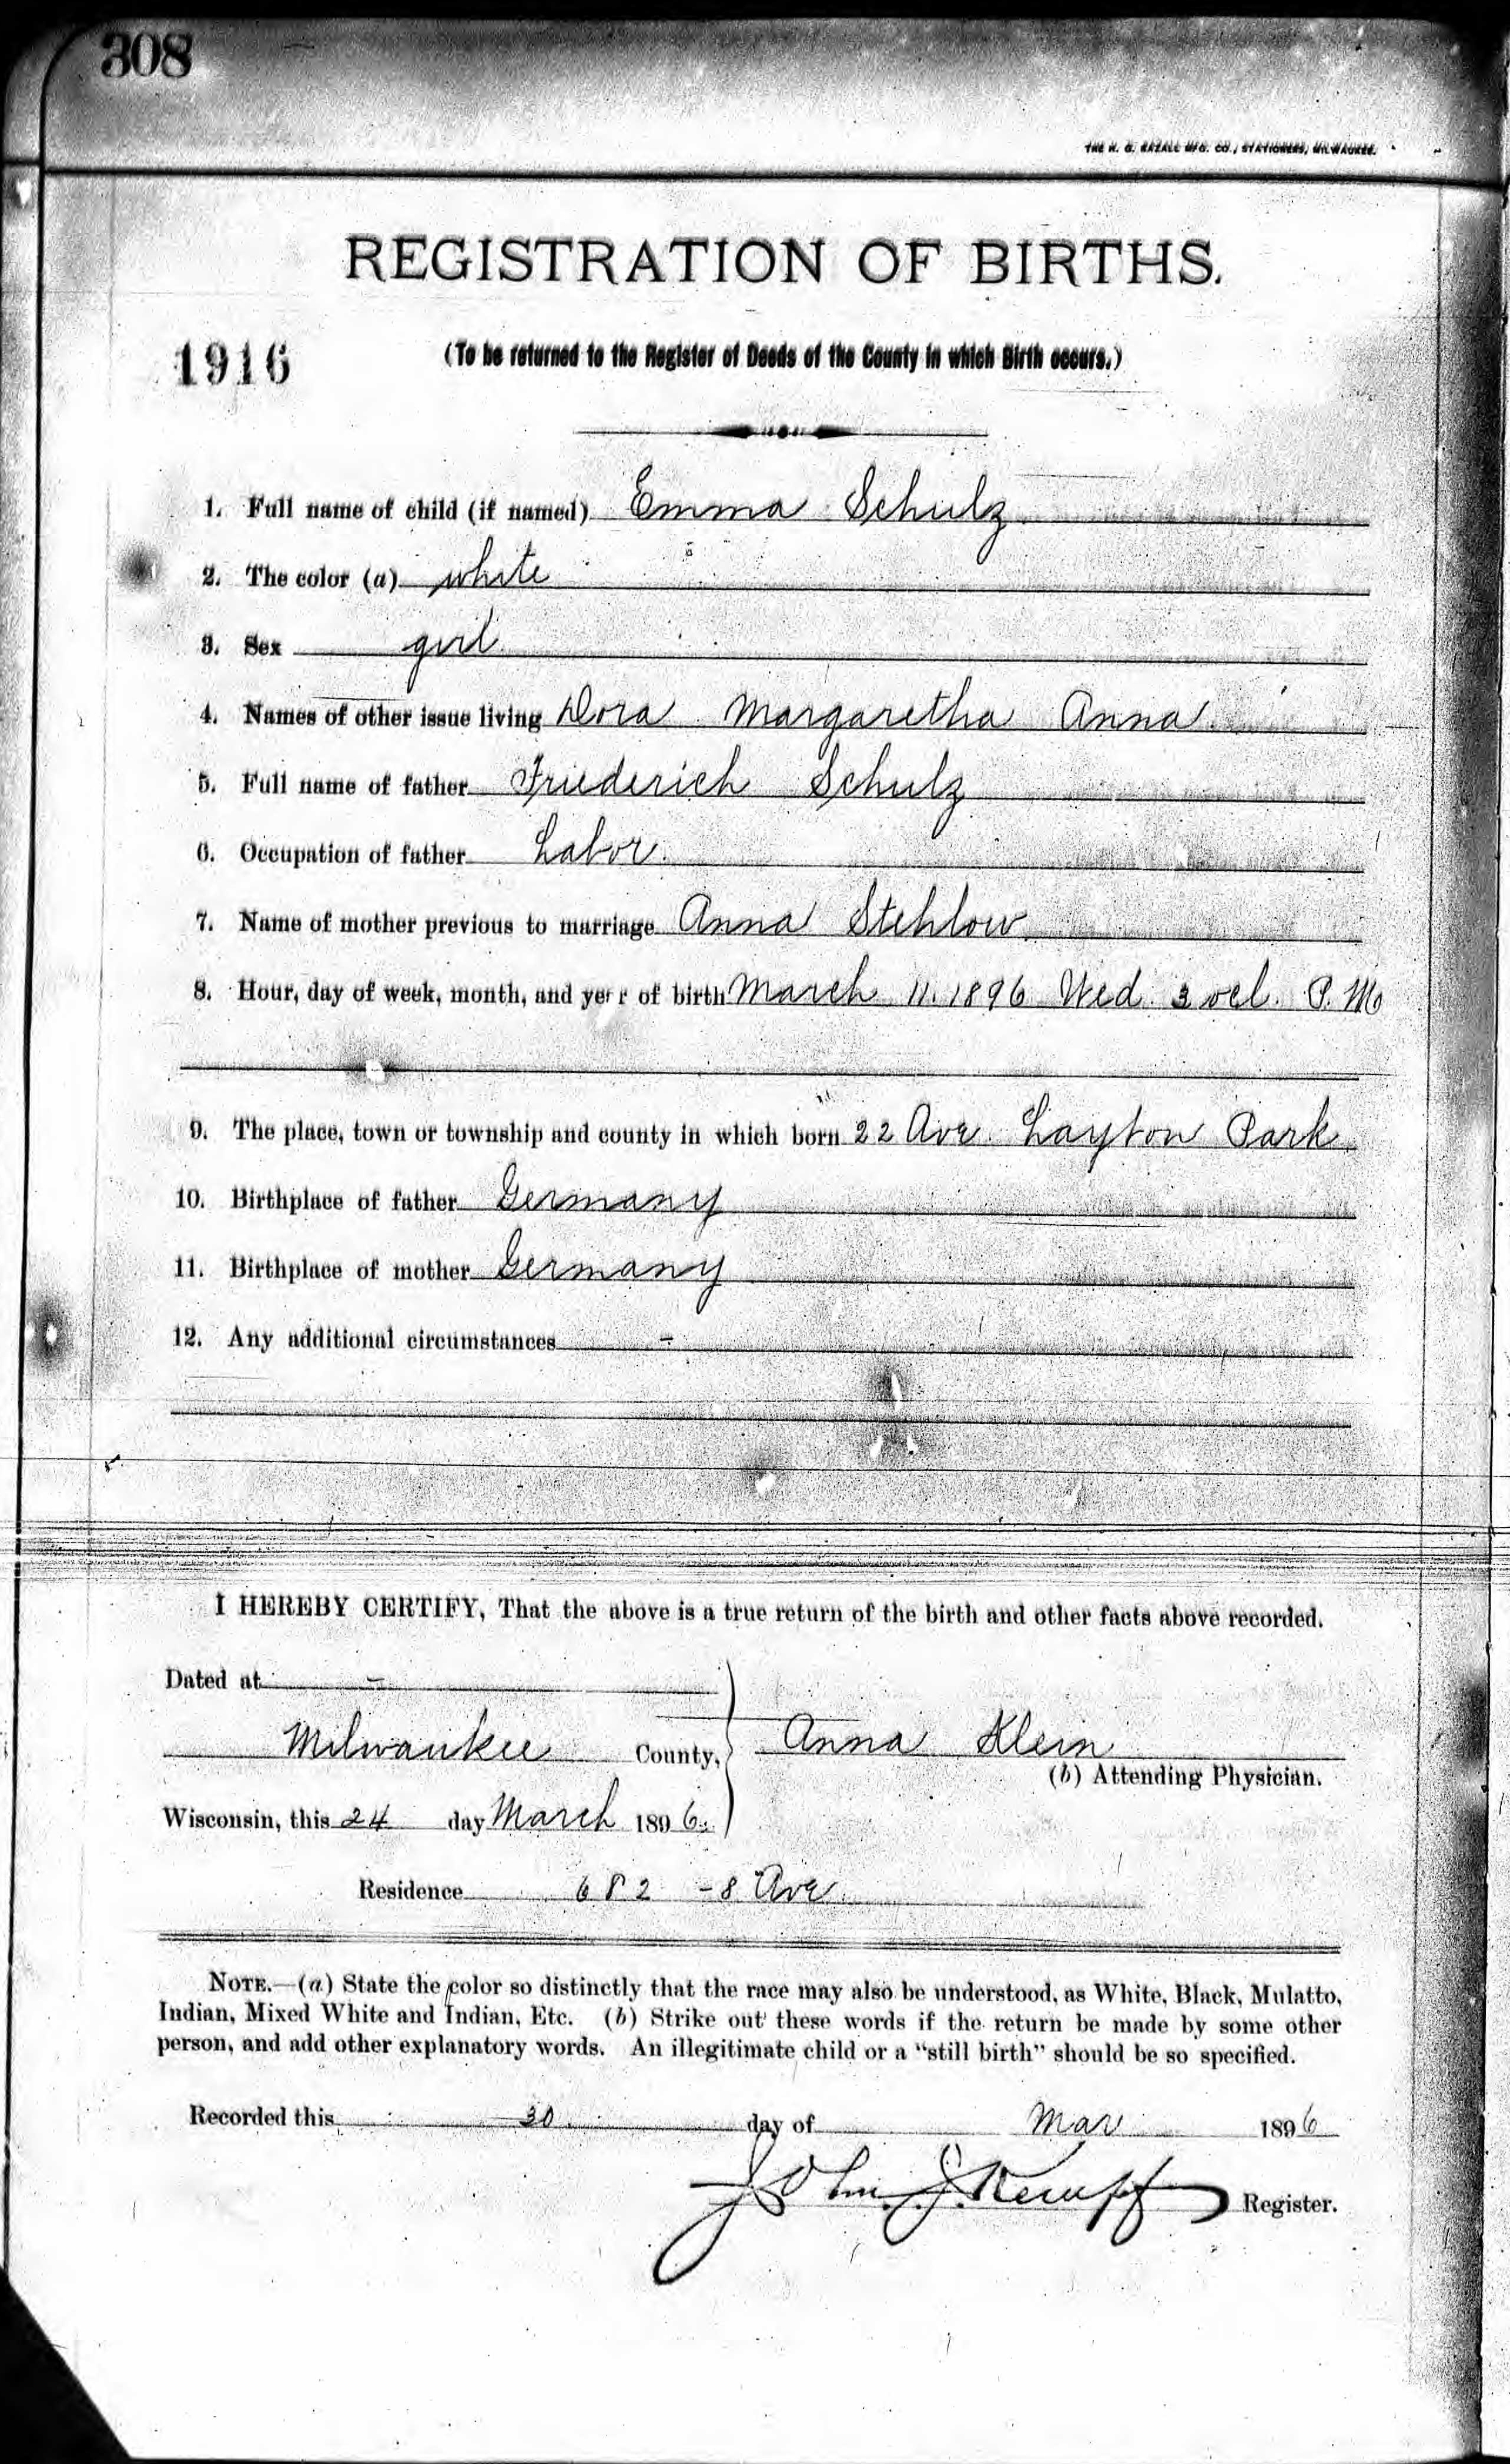 308
THE H. G. RAZALL MFG. CO., STATIONERS, MILWAUKEE.
REGISTRATION OF BIRTHS.
1916
(To be returned to the Register of Deeds of the County in which Birth occurs.)
1. Full name of child (if named) Emma Schulz
2. The color (a) white
3. Sex girl
4. Names of other issue living Dora Margaretha Anna
5. Full name of father Friederich Schulz
6. Occupation of father Labor.
7. Name of mother previous to marriage Anna Stehlow
8. Hour, day of week, month, and year of birth March 11. 1896 Wed. 3 ocl. P. M
9. The place, town or township and county in which born 22 Ave. Layton Park
10. Birthplace of father Germany
11. Birthplace of mother Germany
12. Any additional circumstances -
I HEREBY CERTIFY, That the above is a true return of the birth and other facts above recorded.
Dated at -
Milwaukee County, Anna Klein
(b) Attending Physician.
Wisconsin, this 24 day March 1896.
Residence 682 - 8 Ave.
NOTE.—(a) State the color so distinctly that the race may also be understood, as White, Black, Mulatto,
Indian, Mixed White and Indian, Etc. (b) Strike out these words if the return be made by some other
person, and add other explanatory words. An illegitimate child or a "still birth" should be so specified.
Recorded this 30 day of Mar 1896
John J. Kempf Register.